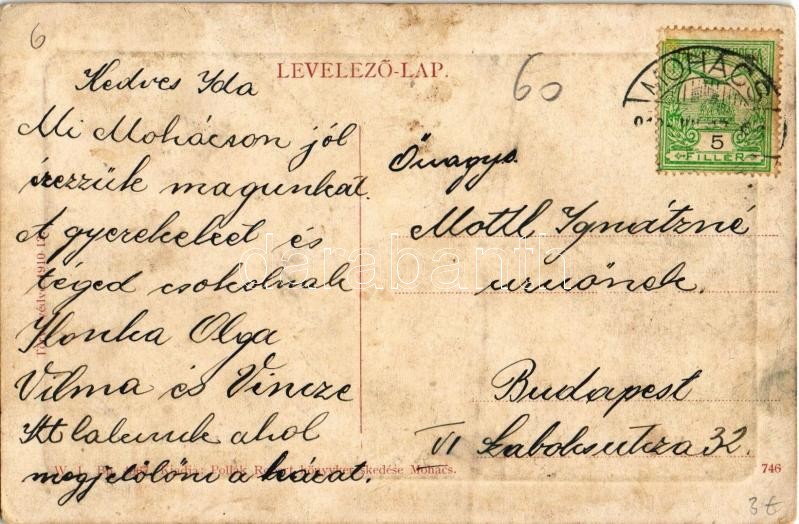 6
LEVELEZŐ-LAP.
60
MOHÁCS
5
FILLÉR
Kedves Ida
Mi Mohácson jól
érezzük magunkat.
A gyerekeket és
téged csokolnak
Ilonka Olga
Vilma és Vincze
Itt lakunk ahol
megjelölöm a házat.
Őnagys.
Mottl Ignátzné
urnőnek.
Budapest
VI Saboksutcza 32.
Kiadja: Pollák Róbert könyvkereskedése Mohács.
746
darabanth
3t